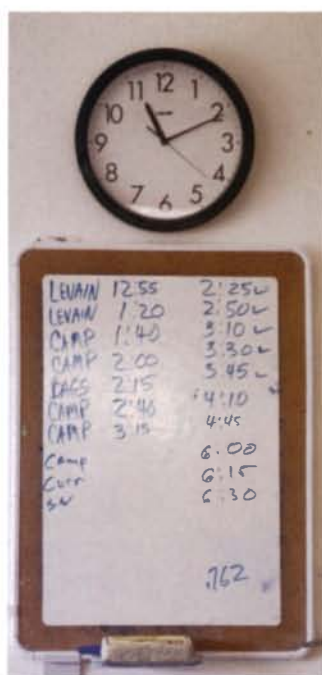 12
1
2
3
4
5
6
7
8
9
10
11
LEVAIN 12:55 2:25✓
LEVAIN 1:20 2:50✓
CAMP 1:40 3:10✓
CAMP 2:00 3:30✓
BAGS 2:15 3:45✓
CAMP 2:40 4:10
CAMP 3:15 4:45
Camp 6:00
6:15
6:30
.762